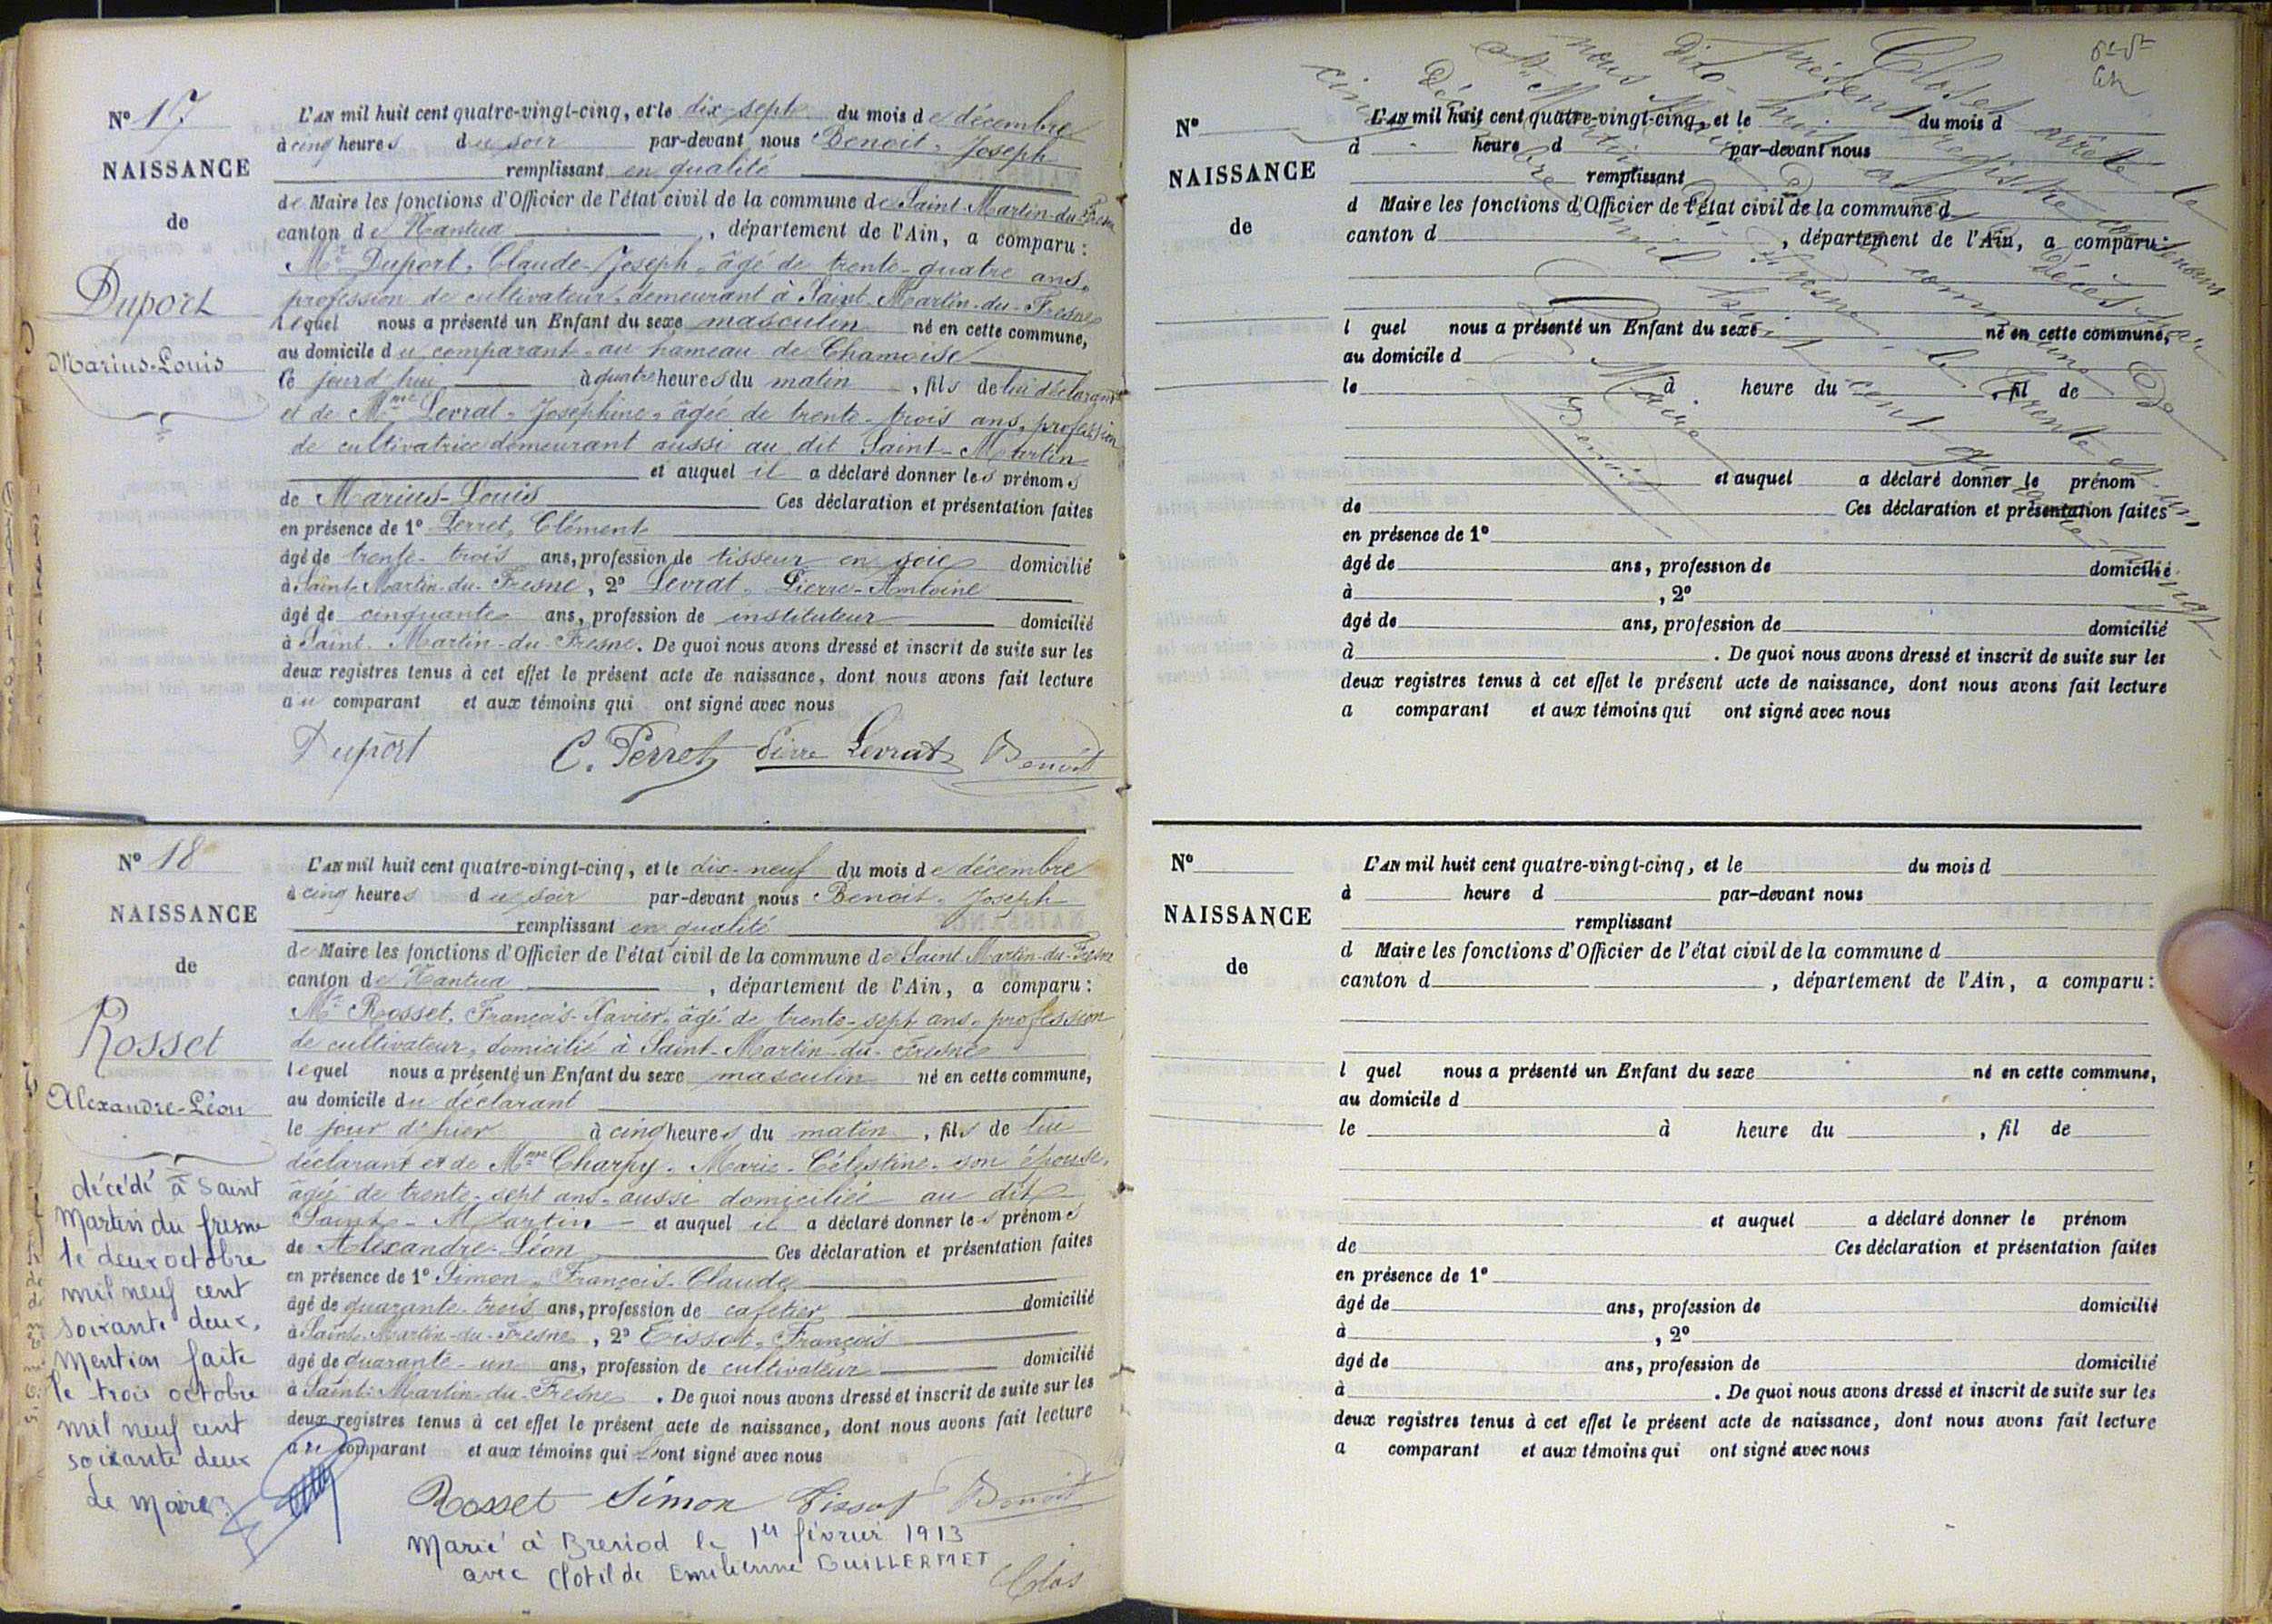 Nº 17
NAISSANCE
de
Duport
Marius-Louis
L'AN mil huit cent quatre-vingt-cinq, et le dix-sept du mois de décembre
à cinq heures du soir par-devant nous Benoit, Joseph
remplissant en qualité
de Maire les fonctions d'Officier de l'état civil de la commune de Saint-Martin-du-Fresne
canton de Nantua, département de l'Ain, a comparu :
Mr Duport, Claude-Joseph, âgé de trente-quatre ans,
profession de cultivateur, demeurant à Saint-Martin-du-Fresne
lequel nous a présenté un Enfant du sexe masculin né en cette commune,
au domicile du comparant au hameau de Chamoise
le jourd'hui à quatre heures du matin, fils de lui déclarant
et de Mme Levrat, Joséphine, âgée de trente-trois ans, profession
de cultivatrice demeurant aussi au dit Saint-Martin
et auquel il a déclaré donner les prénoms
de Marius-Louis Ces déclaration et présentation faites
en présence de 1º Perret, Clément
âgé de trente-trois ans, profession de tisseur en soie domicilié
à Saint-Martin-du-Fresne, 2º Levrat, Pierre-Antoine
âgé de cinquante ans, profession de instituteur domicilié
à Saint-Martin-du-Fresne. De quoi nous avons dressé et inscrit de suite sur les
deux registres tenus à cet effet le présent acte de naissance, dont nous avons fait lecture
au comparant et aux témoins qui ont signé avec nous
Duport C. Perret Pierre Levrat Benoit
Nº 18
NAISSANCE
de
Rosset
Alexandre-Léon
décédé à Saint
Martin du fresne
le deux octobre
mil neuf cent
soixante deux.
Mention faite
le trois octobre
mil neuf cent
soixante deux
Le Maire
L'AN mil huit cent quatre-vingt-cinq, et le dix-neuf du mois de décembre
à cinq heures du soir par-devant nous Benoit, Joseph
remplissant en qualité
de Maire les fonctions d'Officier de l'état civil de la commune de Saint-Martin-du-Fresne
canton de Nantua, département de l'Ain, a comparu :
Mr Rosset, François-Xavier, âgé de trente-sept ans, profession
de cultivateur, domicilié à Saint-Martin-du-Fresne
lequel nous a présenté un Enfant du sexe masculin né en cette commune,
au domicile du déclarant
le jour d'hier à cinq heures du matin, fils de lui
déclarant et de Mme Charpy, Marie-Célestine, son épouse,
âgée de trente-sept ans, aussi domiciliée au dit
Saint-Martin et auquel il a déclaré donner les prénoms
de Alexandre-Léon Ces déclaration et présentation faites
en présence de 1º Simon, François-Claude
âgé de quarante-trois ans, profession de cafetier domicilié
à Saint-Martin-du-Fresne, 2º Tissot, François
âgé de quarante-un ans, profession de cultivateur domicilié
à Saint-Martin-du-Fresne. De quoi nous avons dressé et inscrit de suite sur les
deux registres tenus à cet effet le présent acte de naissance, dont nous avons fait lecture
au comparant et aux témoins qui ont signé avec nous
Rosset Simon Tissot Benoit
Marié à Brenod le 1er février 1913
avec Clotilde Emilienne GUILLERMET
Clos et arrêté le
présent registre contenant
dix-huit actes de décès par
nous Maire de la commune de
St Martin-du-Fresne, le trente et un
Décembre mil huit cent quatre-vingt-
cinq
Le Maire
Benoit
Nº
NAISSANCE
de
L'AN mil huit cent quatre-vingt-cinq, et le du mois d
à heure d par-devant nous
remplissant
d Maire les fonctions d'Officier de l'état civil de la commune d
canton d , département de l'Ain, a comparu :
l quel nous a présenté un Enfant du sexe né en cette commune,
au domicile d
le à heure du , fil de
et auquel a déclaré donner le prénom
de Ces déclaration et présentation faites
en présence de 1º
âgé de ans, profession de domicilié
à , 2º
âgé de ans, profession de domicilié
à . De quoi nous avons dressé et inscrit de suite sur les
deux registres tenus à cet effet le présent acte de naissance, dont nous avons fait lecture
a comparant et aux témoins qui ont signé avec nous
Nº
NAISSANCE
de
L'AN mil huit cent quatre-vingt-cinq, et le du mois d
à heure d par-devant nous
remplissant
d Maire les fonctions d'Officier de l'état civil de la commune d
canton d , département de l'Ain, a comparu :
l quel nous a présenté un Enfant du sexe né en cette commune,
au domicile d
le à heure du , fil de
et auquel a déclaré donner le prénom
de Ces déclaration et présentation faites
en présence de 1º
âgé de ans, profession de domicilié
à , 2º
âgé de ans, profession de domicilié
à . De quoi nous avons dressé et inscrit de suite sur les
deux registres tenus à cet effet le présent acte de naissance, dont nous avons fait lecture
a comparant et aux témoins qui ont signé avec nous